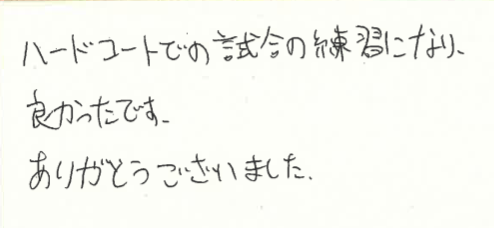 ハードコートでの試合の練習になり、
良かったです。
ありがとうございました。